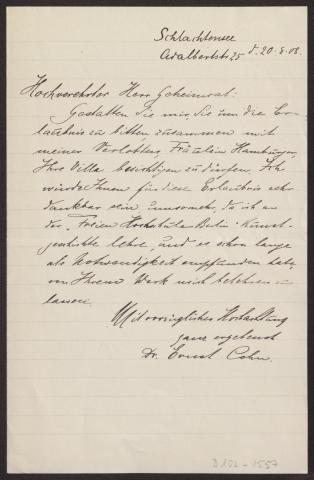 Schlachtensee
Adalbertstr. 25 d. 20.8.08.
Hochverehrter Herr Geheimrat!
Gestatten Sie mir, Sie um die Er-
laubnis zu bitten, zusammen mit
meiner Verlobten, Fräulein Hamburger,
Ihre Villa besichtigen zu dürfen. Ich
würde Ihnen für diese Erlaubnis sehr
dankbar sein, umsomehr, da ich an
der "Freien Hochschule Berlin" Kunst-
geschichte lehre, und es schon lange
als Notwendigkeit empfunden habe,
von Ihrem Werk mich belehren zu
lassen.
Mit vorzüglicher Hochachtung
ganz ergebenst
Dr. Ernst Cohn.